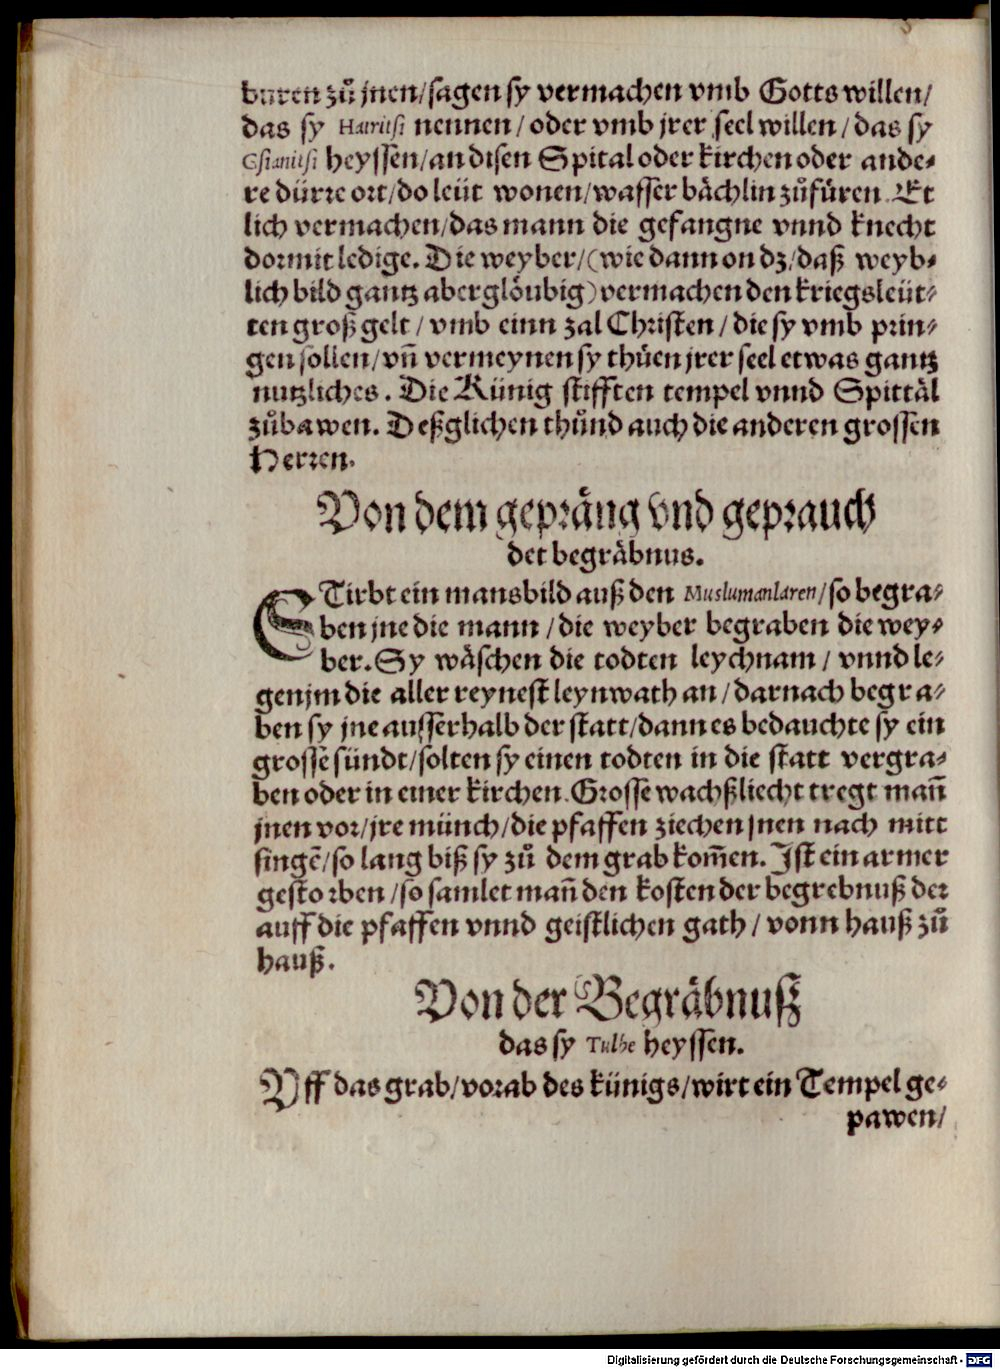 buren zů jnen/sagen sy vermachen vmb Gotts willen/
das sy Hairitsi nennen/oder vmb jrer seel willen/das sy
Gsianitsi heyssen/an disen Spital oder kirchen oder ande⸗
re dürre ort/do leüt wonen/wasser bächlin zůfüren. Et
lich vermachen/das mann die gefangne vnnd knecht
dormit ledige. Die weyber/(wie dann on dz/daß weyb⸗
lich bild gantz aberglöubig) vermachen den kriegsleüt⸗
ten groß gelt/vmb einn zal Christen/die sy vmb prin⸗
gen sollen/vn̄ vermeynen sy thüen jrer seel etwas gantz
nutzliches. Die Künig stifften tempel vnnd Spittäl
zůbawen. Deßglichen thůnd auch die anderen grossen
Herren.
Von dem gepräng vnd geprauch
der begräbnus.
STirbt ein mansbild auß den Muslumanlaren/so begra⸗
ben jne die mann/die weyber begraben die wey⸗
ber. Sy wäschen die todten leychnam/vnnd le⸗
gen jm die aller reynest leynwath an/darnach begra⸗
ben sy jne ausserhalb der statt/dann es bedauchte sy ein
grosse sündt/solten sy einen todten in die statt vergra⸗
ben oder in einer kirchen. Grosse wachßliecht tregt man̄
jnen vor/jre münch/die pfaffen ziechen jnen nach mitt
singē/so lang biß sy zů dem grab kom̄en. Ist ein armer
gestorben/so samlet man̄ den kosten der begrebnuß der
auff die pfaffen vnnd geistlichen gath/vonn hauß zů
hauß.
Von der Begräbnusz
das sy Tulbe heyssen.
Vff das grab/vorab des künigs/wirt ein Tempel ge⸗
pawen/
Digitalisierung gefördert durch die Deutsche Forschungsgemeinschaft - DFG